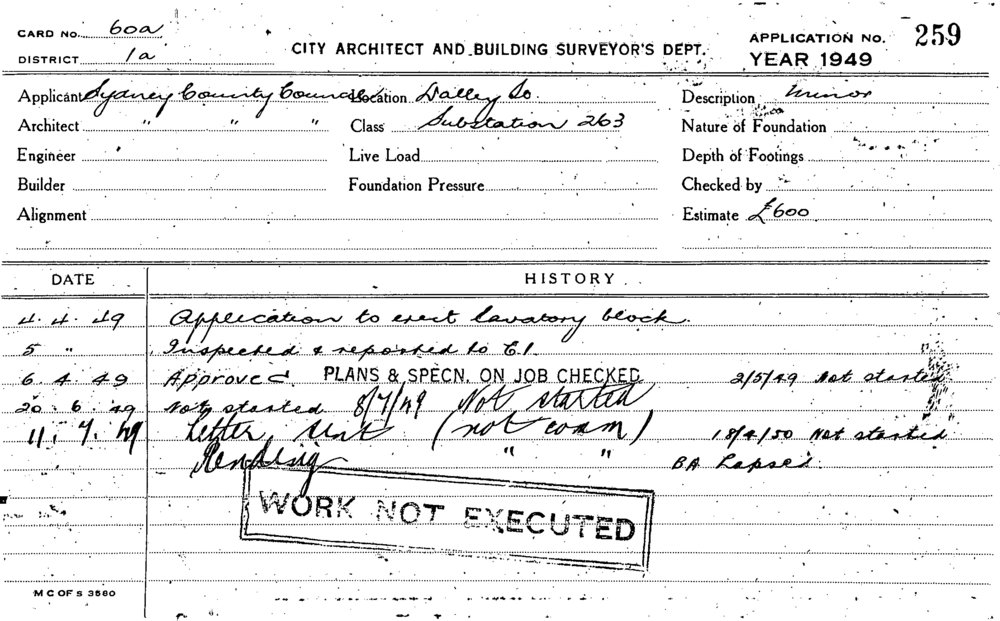 CARD No. 60a
DISTRICT 1a
CITY ARCHITECT AND BUILDING SURVEYOR'S DEPT.
APPLICATION No. 259
YEAR 1949
Applicant Sydney County Council Location Dalley St. Description Minor
Architect " " " Class Substation 263 Nature of Foundation
Engineer Live Load Depth of Footings
Builder Foundation Pressure Checked by
Alignment Estimate £600
DATE HISTORY
4.4.49 Application to erect lavatory block.
5 " Inspected & reported to E.I.
6.4.49 Approved. PLANS & SPECN. ON JOB CHECKED 2/5/49 Not started
20.6.49 Not started 8/7/49 Not started
11.7.49 Letter sent (not comm) 18/4/50 Not started
" Pending " " BA Lapsed.
WORK NOT EXECUTED
M C OF S 3560